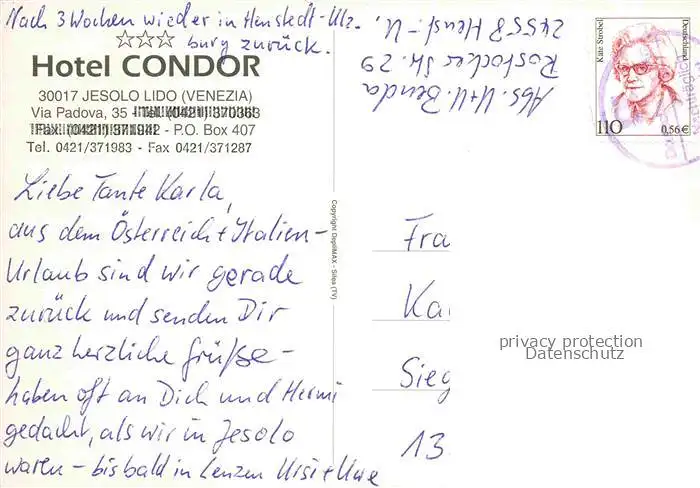 Nach 3 Wochen wieder in Henstedt-Ulz-
burg zurück.
Hotel CONDOR
30017 JESOLO LIDO (VENEZIA)
Via Padova, 35 - Tel. (0421) 370363
Fax. (0421) 371942 - P.O. Box 407
Tel. 0421/371983 - Fax 0421/371287
Liebe Tante Karla,
aus dem Österreich + Italien-
Urlaub sind wir gerade
zurück und senden Dir
ganz herzliche Grüße -
haben oft an Dich und Hermi
gedacht, als wir in Jesolo
waren - bis bald in Lenzen Ursi + Uwe
Copyright DepliMAX - Silea (TV)
Abs. U+U. Benda
Rostocker Str. 29
24558 Henst.-U.
Käte Strobel
Deutschland
110
0,56 €
Fra
Ka
Sieg
13
privacy protection
Datenschutz